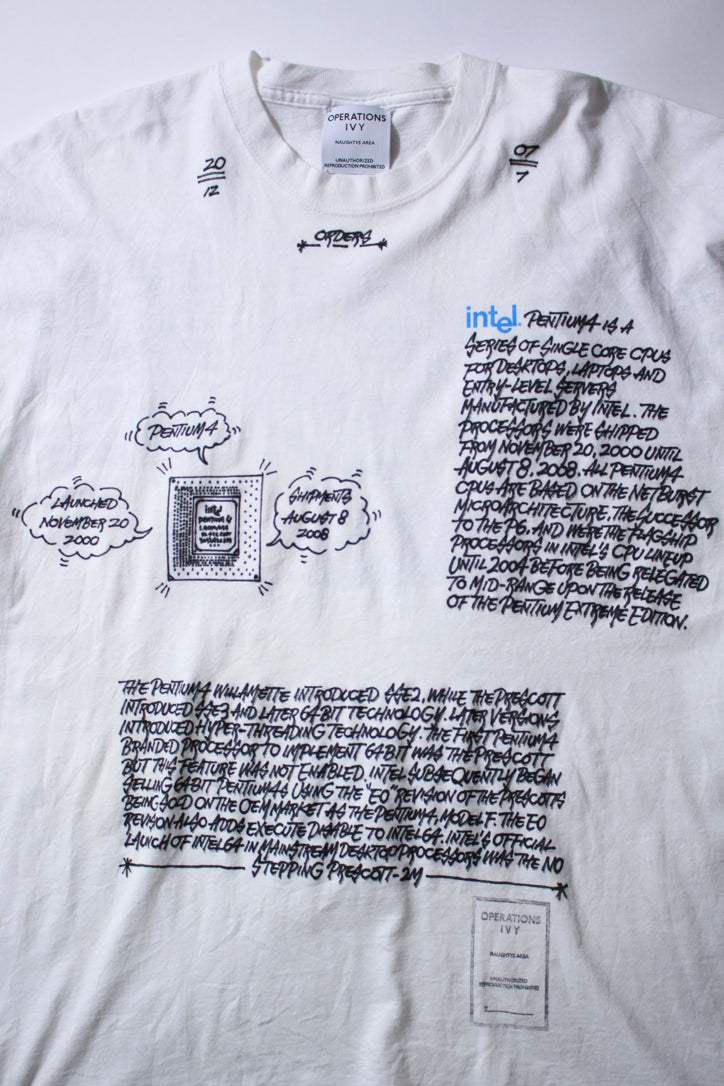 OPERATIONS
IVY
NAUGHTYS AREA
UNAUTHORIZED
REPRODUCTION PROHIBITED
20
12
07
7
ORDERS
intel PENTIUM4 IS A
SERIES OF SINGLE CORE CPUS
FOR DESKTOPS, LAPTOPS AND
ENTRY-LEVEL SERVERS
MANUFACTURED BY INTEL. THE
PROCESSORS WERE SHIPPED
FROM NOVEMBER 20, 2000 UNTIL
AUGUST 8, 2008. ALL PENTIUM4
CPUS ARE BASED ON THE NETBURST
MICROARCHITECTURE. THE SUCCESSOR
TO THE P6. AND WERE THE FLAGSHIP
PROCESSORS IN INTEL'S CPU LINEUP
UNTIL 2004 BEFORE BEING RELEGATED
TO MID-RANGE UPON THE RELEASE
OF THE PENTIUM EXTREME EDITION.
PENTIUM4
LAUNCHED
NOVEMBER 20
2000
SHIPMENTS
AUGUST 8
2008
intel
PENTIUM 4
THE PENTIUM4 WILLAMETTE INTRODUCED SSE2. WHILE THE PRESCOTT
INTRODUCED SSE3 AND LATER 64BIT TECHNOLOGY. LATER VERSIONS
INTRODUCED HYPER-THREADING TECHNOLOGY. THE FIRST PENTIUM4
BRANDED PROCESSOR TO IMPLEMENT 64BIT WAS THE PRESCOTT
BUT THIS FEATURE WAS NOT ENABLED. INTEL SUBSEQUENTLY BEGAN
SELLING 64BIT PENTIUM4S USING THE "E0" REVISION OF THE PRESCOTTS
BEING SOLD ON THE OEM MARKET AS THE PENTIUM4, MODEL F. THE E0
REVISON ALSO ADDS EXECUTE DISABLE TO INTEL64. INTEL'S OFFICIAL
LAUNCH OF INTEL64 IN MAINSTREAM DESKTOP PROCESSORS WAS THE N0
STEPPING PRESCOTT-2M
OPERATIONS
IVY
NAUGHTYS AREA
UNAUTHORIZED
REPRODUCTION PROHIBITED